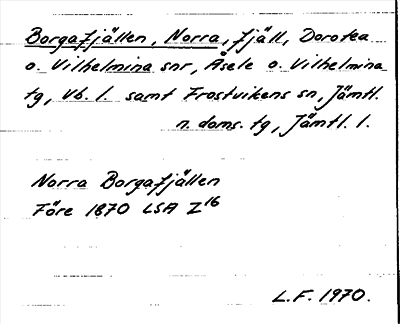 Borgafjällen, Norra, fjäll, Dorotea
o. Vilhelmina snr, Åsele o. Vilhelmina
tg, Vb. l. samt Frostvikens sn, Jämtl.
n. doms. tg, Jämtl. l.
Norra Borgafjällen
Före 1870 LSA Z16
L.F. 1970.